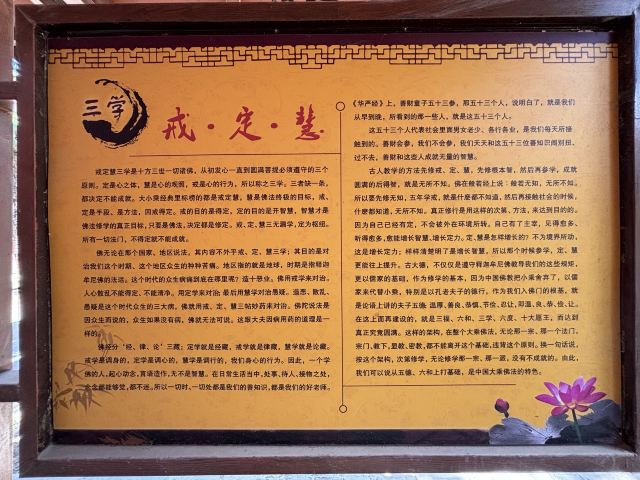 三学
戒·定·慧
戒定慧三学是十方三世一切诸佛，从初发心一直到圆满菩提必须遵守的三个
原则，定是心之体，慧是心的观照，戒是心的行为，所以称之三学。三者缺一条，
都决定不能成就。大小乘经典里标榜的都是戒定慧，慧是佛法终极的目标，戒、
定是手段、是方法，因戒得定。戒的目的是得定，定的目的是开智慧，智慧才是
佛法修学的真正目标，只要是佛法，决定都是修定。戒、定、慧三无漏学，定为枢纽。
所有一切法门，不得定就不能成就。
佛无论在那个国家、地区说法，其内容不外乎戒、定、慧三学；其目的是对
治我们这个时期、这个地区众生的种种苦病。地区指的就是地球，时期是指释迦
牟尼佛的法运。这个时代的众生病痛到底在哪里呢？造十恶业。佛用戒学来对治。
人心散乱不能得定、不能清净。用定学来对治；最后用慧学对治愚疑。造恶、散乱、
愚疑是这个时代众生的三大病，佛就用戒、定、慧三帖妙药来对治。佛陀说法是
因众生而说的，众生如果没有病，佛就无法可说。这跟大夫因病用药的道理是一
样的。
佛经分‘经、律、论’三藏；定学就是经藏，戒学就是律藏，慧学就是论藏。
戒学是调身的，定学是调心的，慧学是调行的，我们身心的行为。因此，一个学
佛的人，起心动念，言语造作，无不是智慧。在日常生活当中，处事、待人、接物之处，
念念都能够觉，都不迷。所以一切时、一切处都是我们的善知识，都是我们的好老师。
《华严经》上，善财童子五十三参，那五十三个人，说明白了，就是我们
从早到晚，所看到的那一些人，就是这五十三个人。
这五十三个人代表社会里男女老少、各行各业，是我们每天所接
触到的。善财会参，我们不会参，我们天天和这五十三位善知识闹别扭、
过不去，善财和这些人成就无量的智慧。
古人教学的方法先修戒、定、慧，先修根本智，然后再参学，成就
圆满的后得智，就是无所不知。佛在般若经上说：般若无知，无所不知。
所以要先修无知，五年学戒，就是什么都不知道，然后再接触社会的时候，
什麽都知道，无所不知。真正修行是用这样的次第、方法，来达到目的的。
因为自己已经有定，不会被外在环境所转。自己有了主宰，见得愈多、
听得愈多，愈能增长智慧、增长定力。定、慧是怎样增长的？不为境界所动，
这是增长定力；样样清楚明了是增长智慧，所以那个时候参学，定、慧
更能往上提升。古大德，不仅仅是遵守释迦牟尼佛教导我们的这些规矩，
更以儒家的基础，作为修学的基本，因为中国佛教把小乘舍弃了，以儒
家来代替小乘，特别是以孔老夫子的德行，作为我们入佛门的根基，就
是论语上讲的夫子五德：温厚、善良、恭慎、节俭、忍让，即温、良、恭、俭、让。
在这上面再建设的，就是三福、六和、三学、六度、十大愿王，而达到
真正究竟圆满。这样的架构，在整个大乘佛法，无论那一宗、那一个法门，
宗门、教下，显教、密教，都不能离开这个基础，违背这个原则。换一句话说，
按这个架构，次第修学，无论修学那一宗、那一派，没有不成就的。由此，
我们可以说从五德、六和上打基础，是中国大乘佛法的特色。